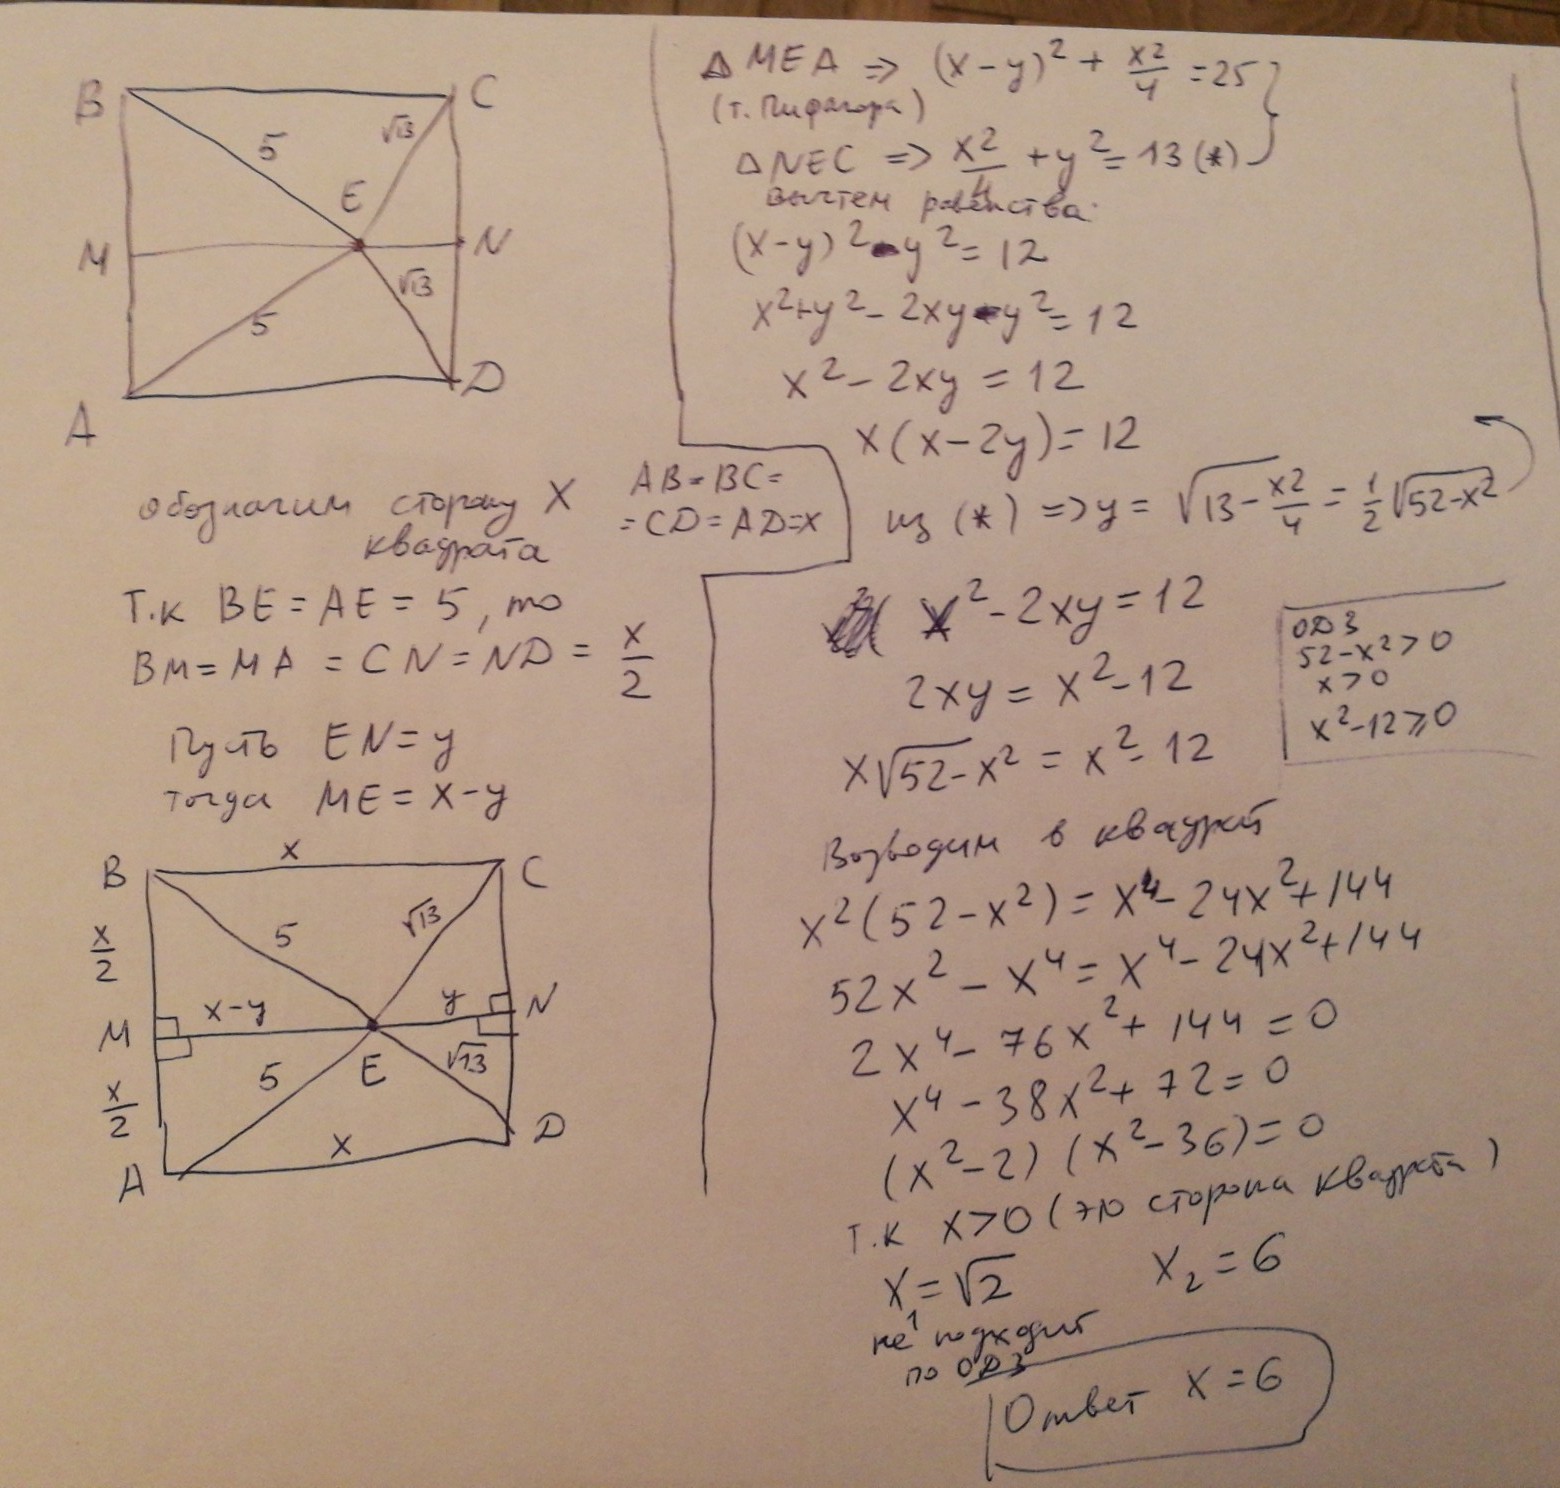 B
C
5
√13
E
M
N
√13
5
A
D
обозначим сторону X
квадрата
AB = BC =
= CD = AD = x
Т.к BE = AE = 5, то
BM = MA = CN = ND = x/2
Пусть EN = y
тогда ME = x - y
x
B
C
x/2
5
√13
x-y
y
M
N
5
E
√13
x/2
x
D
A
△ MEA => (x-y)² + x²/4 = 25
(т. Пифагора)
△ NEC => x²/4 + y² = 13 (*)
вычтем равенства:
(x-y)² - y² = 12
x² + y² - 2xy - y² = 12
x² - 2xy = 12
x(x-2y) = 12
из (*) => y = √(13 - x²/4) = 1/2 √(52-x²)
x² - 2xy = 12
2xy = x² - 12
x√(52-x²) = x² - 12
ОДЗ
52-x²>0
x>0
x²-12⩾0
Возводим в квадрат
x²(52-x²) = x⁴ - 24x² + 144
52x² - x⁴ = x⁴ - 24x² + 144
2x⁴ - 76x² + 144 = 0
x⁴ - 38x² + 72 = 0
(x²-2)(x²-36) = 0
т.к x>0 (это сторона квадрата)
x₁ = √2 x₂ = 6
не подходит
по ОДЗ
Ответ x = 6